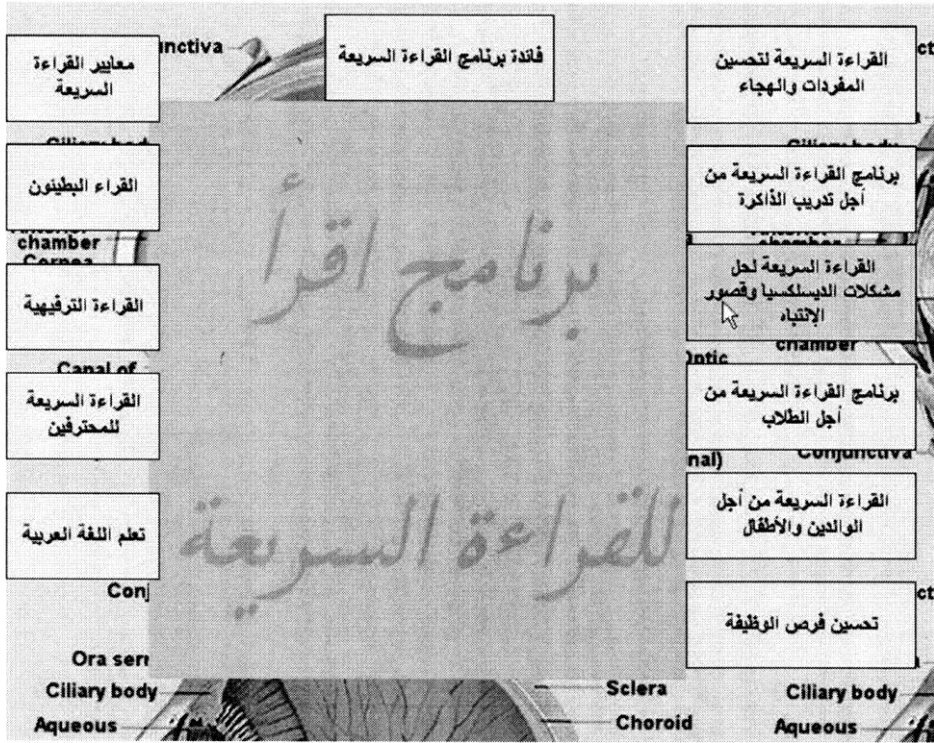 فائدة برنامج القراءة السريعة
القراءة السريعة لتحسين
المفردات والهجاء
برنامج القراءة السريعة من
أجل تدريب الذاكرة
القراءة السريعة لحل
مشكلات الديسلكسيا وقصور
الإنتباه
برنامج القراءة السريعة من
أجل الطلاب
القراءة السريعة من أجل
الوالدين والأطفال
تحسين فرص الوظيفة
معايير القراءة
السريعة
القراء البطيئون
القراءة الترفيهية
القراءة السريعة
للمحترفين
تعلم اللغة العربية
برنامج اقرأ
للقراءة السريعة
chamber
Canal of
Ciliary body
Aqueous
Sclera
Choroid
chamber
Conjunctiva
Ciliary body
Aqueous